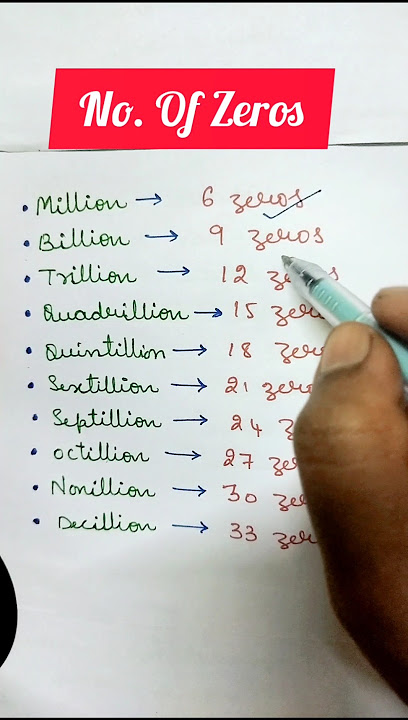 No. Of Zeros
• Million → 6 zeros
• Billion → 9 zeros
• Trillion → 12 zeros
• Quadrillion → 15 zer
• Quintillion → 18 ze
• Sextillion → 21 zero
• Septillion → 24 z
• octillion → 27 ze
• Nonillion → 30 ze
• Decillion → 33 zer